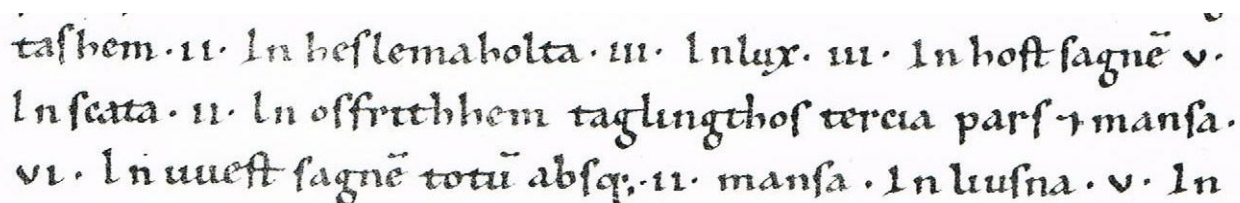 taſhem ·ıı· In heſlemaholta · ııı· Inlux· ııı · In hoſt ſagnē v·
In ſcata · ıı· In oſfrithhem taglingthoſ tercıa parſ ⁊ manſa·
vı· In uueſt ſagnē totū abſq;·ıı· manſa · In lıuſna · v · In